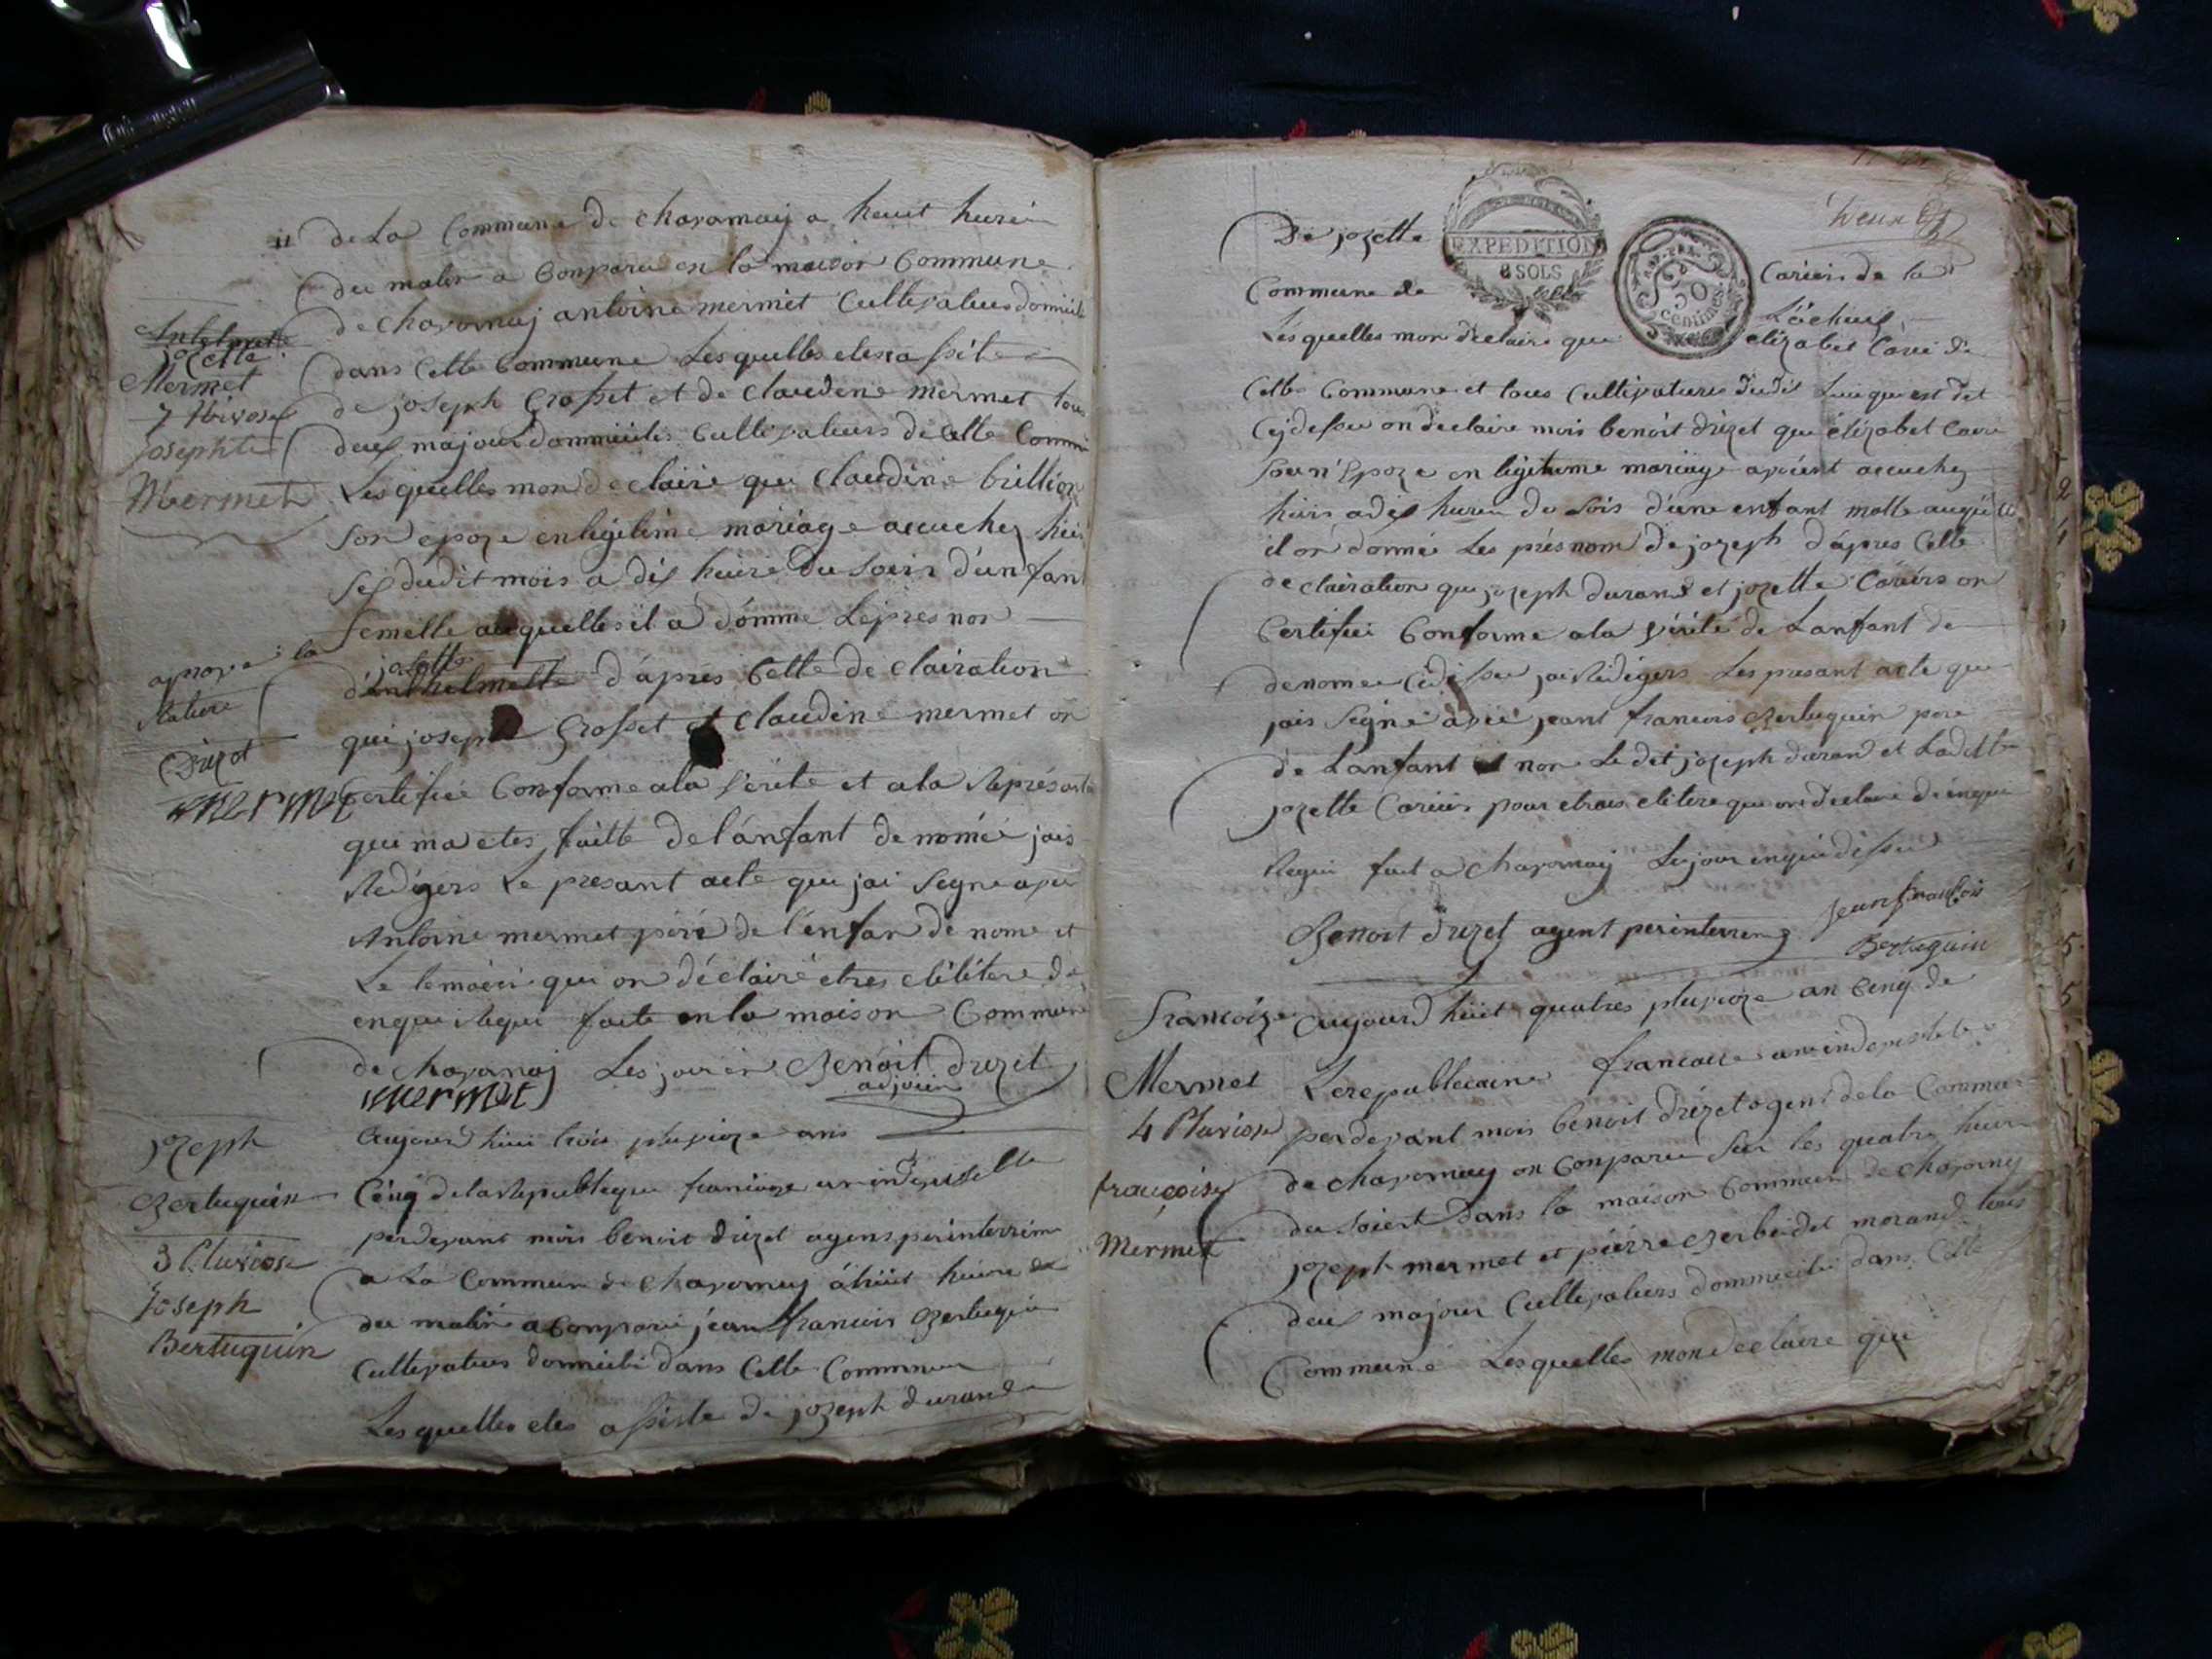 de La Commune de charamaij a heuit hurés
du matin a Conparu en la maison Commune
de charomaij antoine mermet Culltivateur domicil
dans Cette Commune Les quelles etes a sisté
de joseph Grosset et de Claudine mermet tous
deux majour dommiciles Culltivateurs de Cette Commu
Les quelles mon de claire que Claudine brillion
Son epoze en legitime mariage acuchez hier
Ses dudit mois a dix heure du soir d'un fant
femelle auquelles il a domme Le pres non
jozette
d'enthelmette d'apres Cette de clairation
que joseph Grosset et Claudine mermet on
Certifiée Conforme a la vérité et a la Représenta
qui ma etes faitte de l'anfant de nomée jais
Redigers Le presant acte que jai Segne avec
Antoine mermet pére de l'enfan de nome et
Le temoein que on déclairé etres elitere de
enqui Requi faite en la maison Commune
de charamaij Les jour en Benoit druzet
adjoin
mermet
jozette
Mermet
7 Nivose
josephte
Mermet
aprove la
Rature
Druzet
mermet
jozeph
Bertuquin
3 Pluviose
Joseph
Bertuquin
Aujourd huui trois pluvioze ans
Cinq de la Republeque francoize un indivisselle
par devant mois benoit druzet agens par interrim
a La Commun de charomey a huit heure
du matin a Conparu jean francois Bertuquin
Culltivateur domicili dans Cette Commune
Les quelles etes a sisté de jozeph durand
De jozette
EXPEDITION
8 SOLS
50
centimes
Cariér de la
Commune de
Les quelles mon declaire que
elizabet Carié de
Cette Commune et tous Culltivatures dudit Lui que est dit
Cej dessu on declaire mois benoit druzet que elizabet Carie
Son n'Epoze en legitume mariage avoient acuchez
hiers a dix heure du Soir d'une enfant malle auquelle
il on donnée Les prés nom de jozeph d'apres Cette
de clairation que jozeph durand et jozette Cariérs on
Certifiée Conforme a la vérité de Lanfant de
denomee Cidessu jai Redigers Les presant acte que
jais Segné avec jeant francois Bertuquin pere
de Lanfant et non Le dit jozeph durand et Laditte
jozette Cariér pour etres elitere que on declaire de enqui
Requi fait a charomaij Lu jour enqui dessu
Benoit druzet agent perinterrim
jean francois
Bertuquin
francoize
Mermet
4 Pluviose
françoise
Mermet
Aujourd huit quatres pluvioze an Cinq de
La republicaine francoize une indivisible
par devant mois benoit druzet agent de la Commune
de charomay on Conparu Sur les quatre heure
du Soiert dans la maison Commune de charomey
jozeph mermet et piérre Berbeidet morand tous
deux majour Culltivateurs dommicili dans Cette
Commune Lesquelles mon declaire que